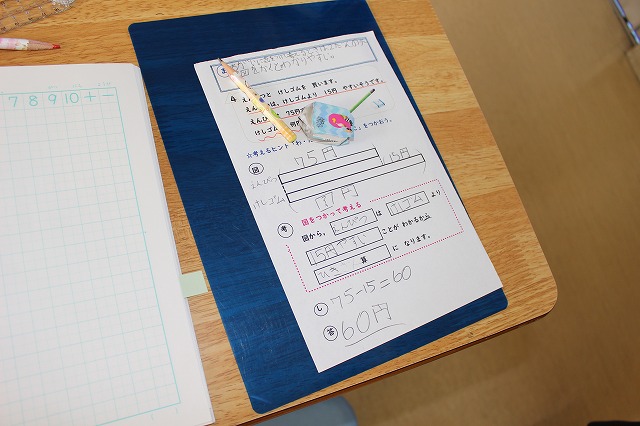 7 8 9 10 + −
図をかくとわかりやすい。
4 えんぴつと けしゴムを 買います。
えんぴつは、けしゴムより 15円 やすいそうです。
えんぴつ 75円
けしゴム 何円
☆考えるヒント
図
75円
えんぴつ
15円
けしゴム
円
図をつかって考える
考
図から、えんぴつ は けしゴム より
15円やすい ことが わかるから
ひき 算 に なります。
し 75-15=60
答 60円